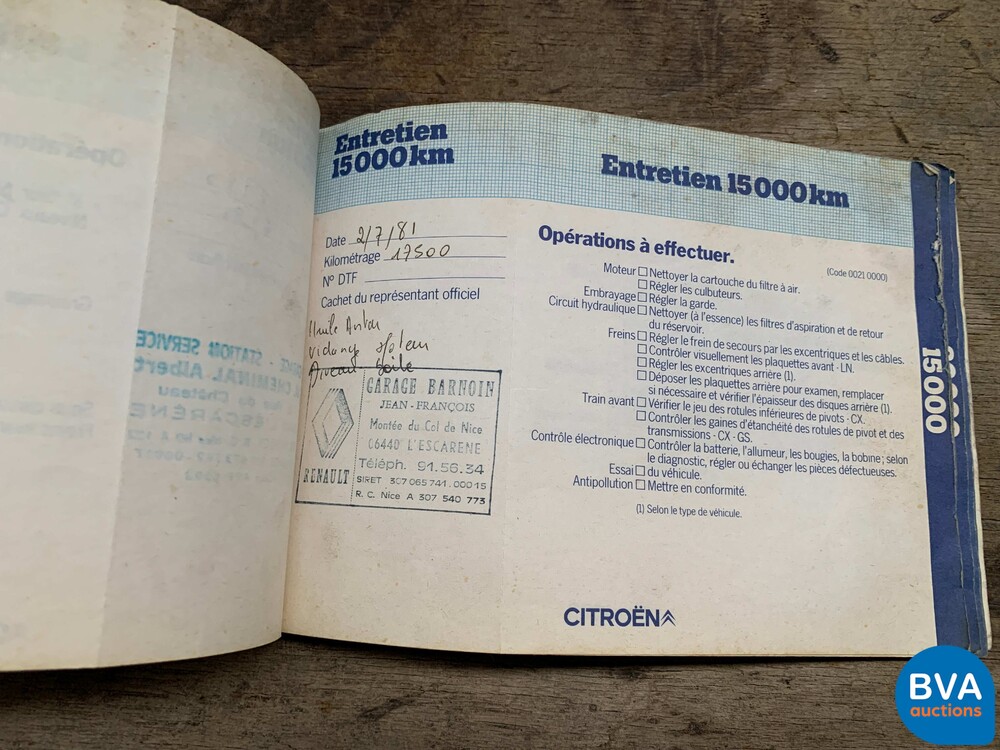 Entretien
15000km
Date 2/7/81
Kilométrage 17500
N° DTF
Cachet du représentant officiel
Huile
Vidange
Boîte
RENAULT
GARAGE BARNOIN
JEAN-FRANÇOIS
Montée du Col de Nice
06440 L'ESCARENE
Téléph. 91.56.34
SIRET 307 065 741.00015
R. C. Nice A 307 540 773
Entretien 15000km
Opérations à effectuer.
(Code 0021 0000)
Moteur □ Nettoyer la cartouche du filtre à air.
□ Régler les culbuteurs.
Embrayage □ Régler la garde.
Circuit hydraulique □ Nettoyer (à l'essence) les filtres d'aspiration et de retour
du réservoir.
Freins □ Régler le frein de secours par les excentriques et les câbles.
□ Contrôler visuellement les plaquettes avant - LN.
□ Régler les excentriques arrière (1).
□ Déposer les plaquettes arrière pour examen, remplacer
si nécessaire et vérifier l'épaisseur des disques arrière (1).
Train avant □ Vérifier le jeu des rotules inférieures de pivots - CX.
□ Contrôler les gaines d'étanchéité des rotules de pivot et des
transmissions - CX - GS.
Contrôle électronique □ Contrôler la batterie, l'allumeur, les bougies, la bobine; selon
le diagnostic, régler ou échanger les pièces défectueuses.
Essai □ du véhicule.
Antipollution □ Mettre en conformité.
(1) Selon le type de véhicule.
CITROËN
15000
STATION SERVICE
CHEMINAL Albert
du Château
ESCARÈNE
BVA
auctions